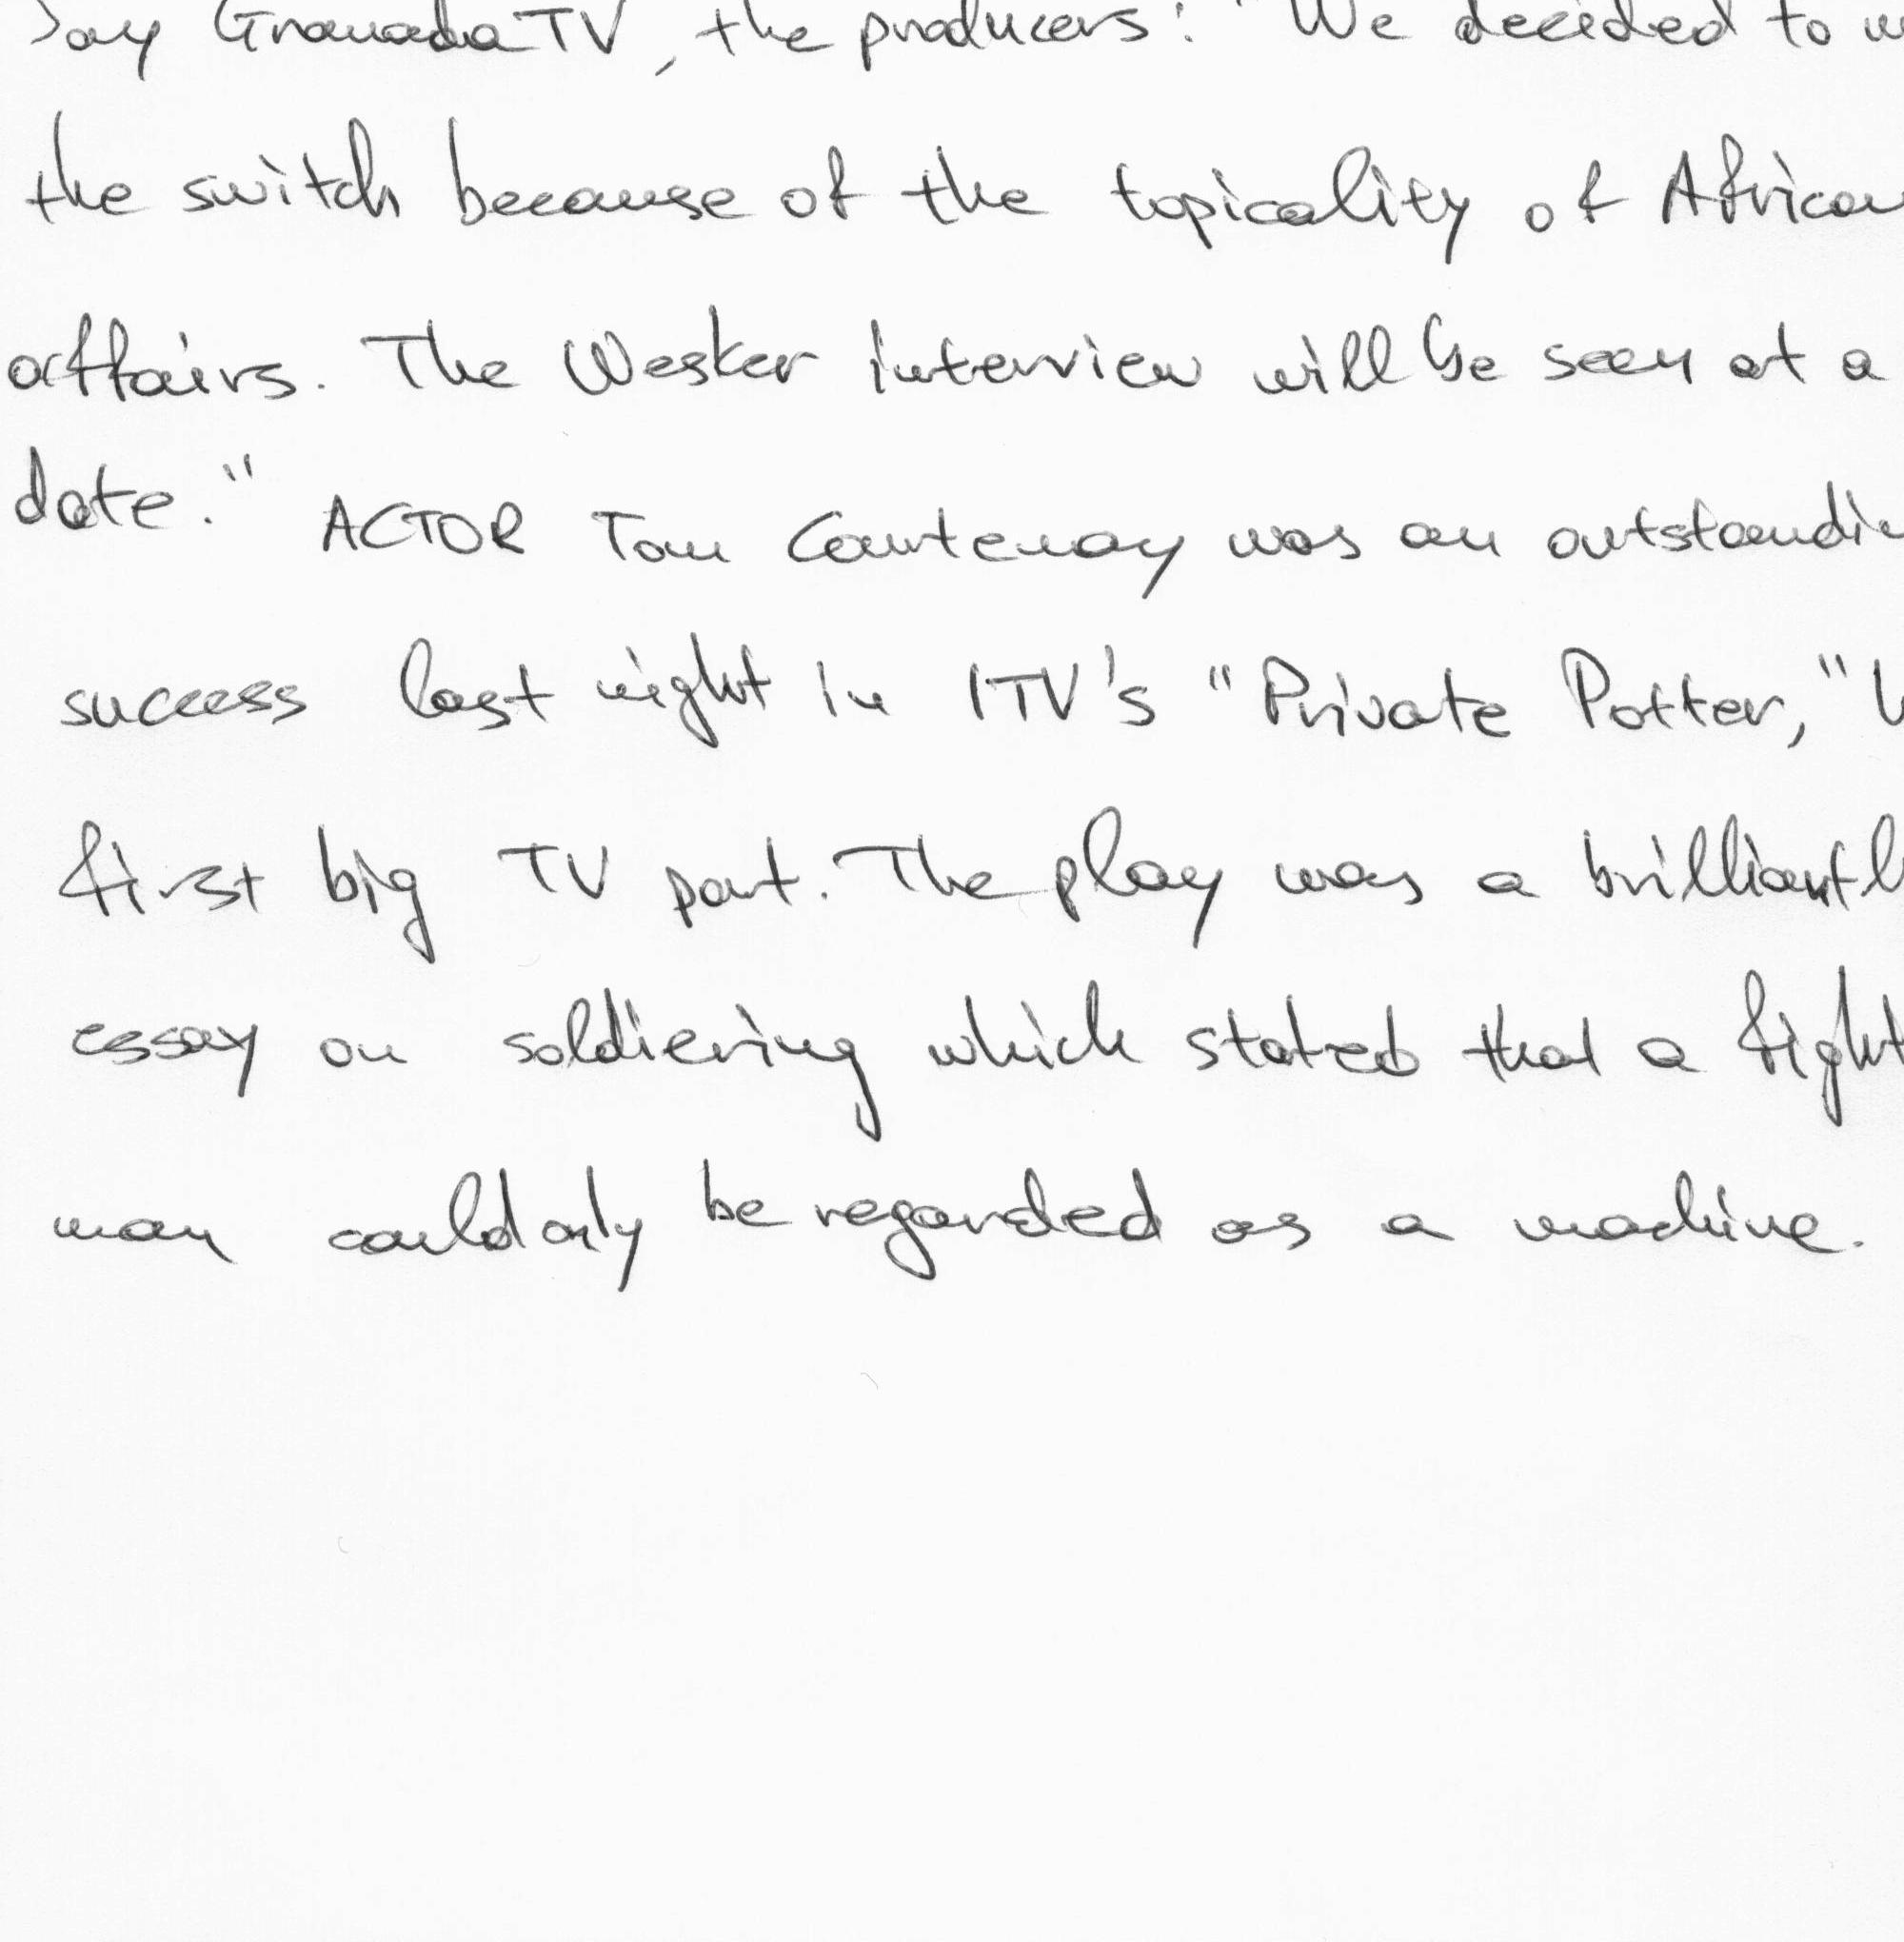 Say Granada TV, the producers: "We decided to
the switch because of the topicality of African
affairs. The Wesker interview will be seen at a
date."
ACTOR Tom Courtenay was an
success last night in ITV's "Private Potter,"
first big TV part. The play was a
essay on soldiering which stated that a
man could only be regarded as a machine.